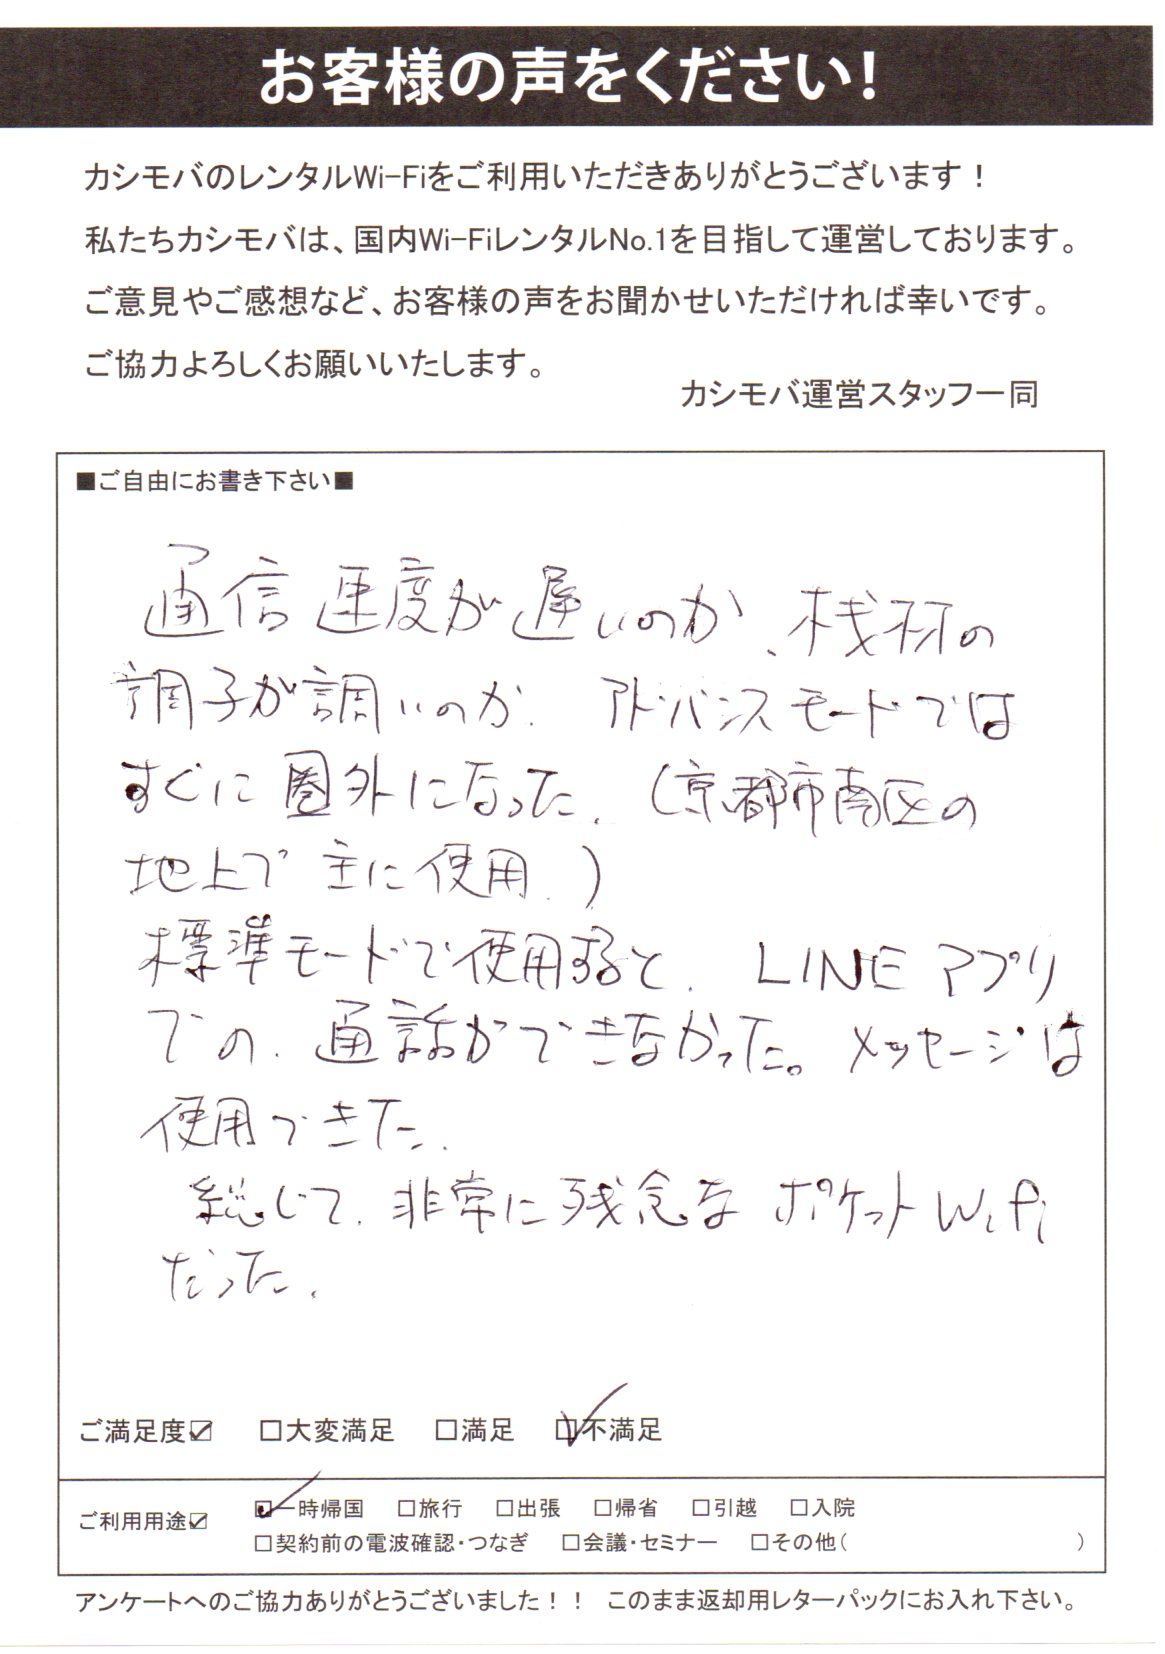 お客様の声をください！
カシモバのレンタルWi-Fiをご利用いただきありがとうございます！
私たちカシモバは、国内Wi-FiレンタルNo.1を目指して運営しております。
ご意見やご感想など、お客様の声をお聞かせいただければ幸いです。
ご協力よろしくお願いいたします。
カシモバ運営スタッフ一同
■ご自由にお書き下さい■
通信速度が遅いのか、桟材の
調子が調いのか、アドバンスモードでは
すぐに圏外になった。(京都市南区の
地上で主に使用。)
標準モードで使用すると、LINEアプリ
での、通話ができなかった。メッセージは
使用できた。
総じて、非常に残念なポケットWifi
だった。
ご満足度☑ □大変満足 □満足 ☑不満足
ご利用用途☑ ☑一時帰国 □旅行 □出張 □帰省 □引越 □入院
□契約前の電波確認・つなぎ □会議・セミナー □その他( )
アンケートへのご協力ありがとうございました！！ このまま返却用レターパックにお入れ下さい。